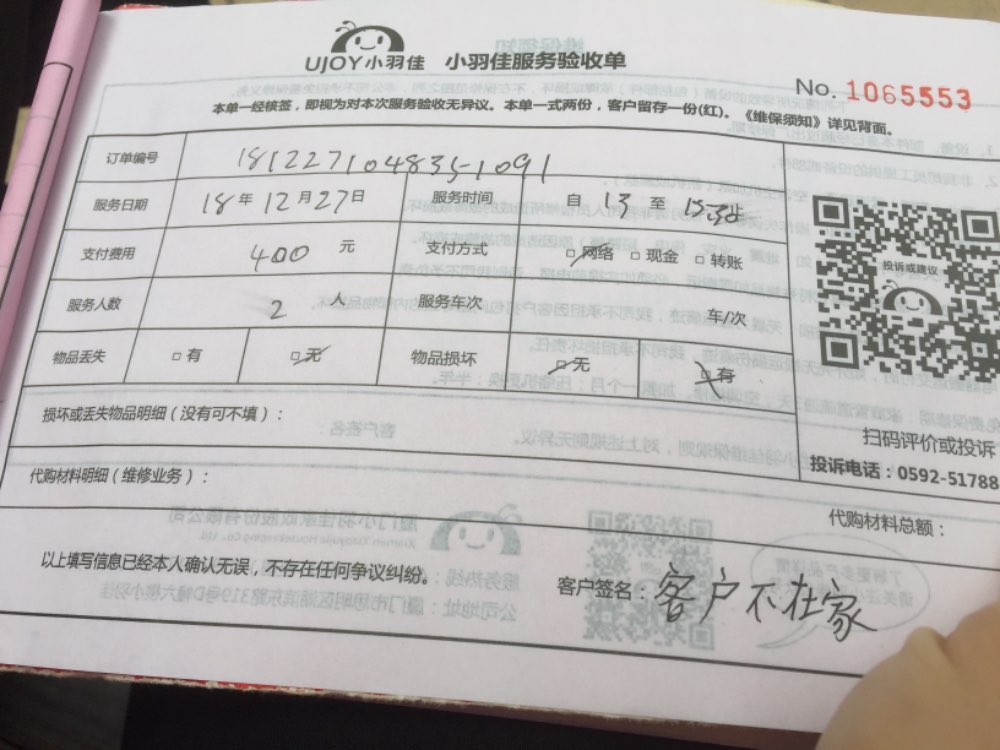 UJOY小羽佳 小羽佳服务验收单
No. 1065553
本单一经核签，即视为对本次服务验收无异议。本单一式两份，客户留存一份(红)。《维保须知》详见背面。
订单编号 181227104835-1091
服务日期 18年12月27日 服务时间 自 13 至 15:30
支付费用 400 元 支付方式 □网络 □现金 □转账
服务人数 2 人 服务车次 车/次
物品丢失 □有 □无 物品损坏 □无 □有
投诉或建议
扫码评价或投诉
投诉电话：0592-51788
损坏或丢失物品明细（没有可不填）：
代购材料明细（维修业务）：
代购材料总额：
以上填写信息已经本人确认无误，不存在任何争议纠纷。
客户签名：客户不在家